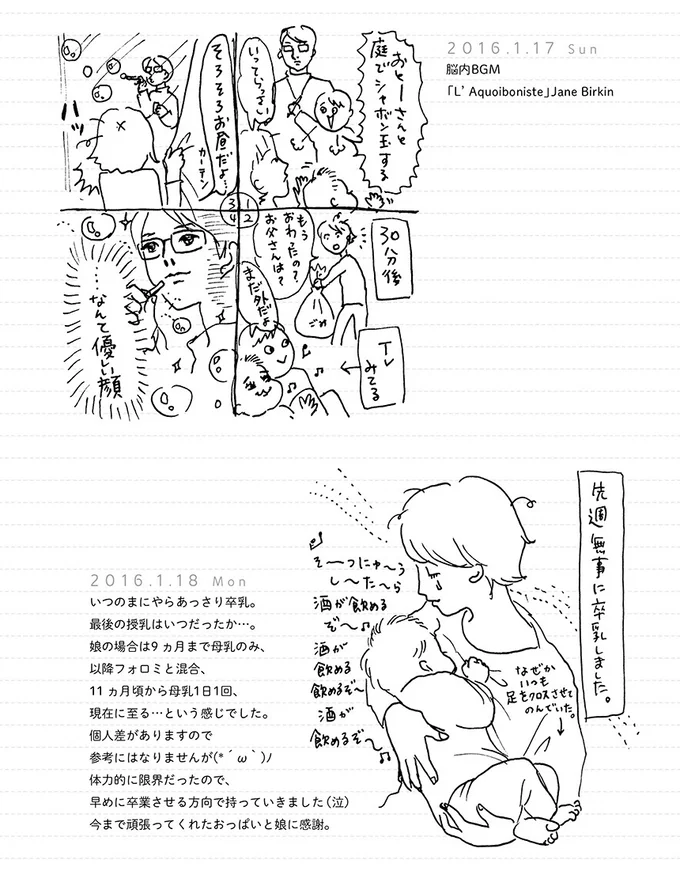 2016.1.17 Sun
脳内BGM
「L' Aquoiboniste」Jane Birkin
おとーさんと
庭で
シャボン玉する
いってらっさい
1
2
3
4
30分後
もう
おわったの?
お父さんは?
まだ外だよ
ごみ
TV
みてる
そろそろお昼だよ…
カーテン
…なんて優しい顔
2016.1.18 Mon
いつのまにやらあっさり卒乳。
最後の授乳はいつだったか…。
娘の場合は9ヵ月まで母乳のみ、
以降フォロミと混合、
11ヵ月頃から母乳1日1回、
現在に至る…という感じでした。
個人差がありますので
参考にはなりませんが(*´ω`)ノ
体力的に限界だったので、
早めに卒業させる方向で持っていきました(泣)
今まで頑張ってくれたおっぱいと娘に感謝。
先週無事に卒乳しました。
そ〜つにゅ〜う
し〜た〜ら
酒が飲める
ぞ〜♪
酒が
飲める
飲めるぞ〜
酒が
飲めるぞ〜♪
なぜか
いつも
足をクロスさせて
のんでいた。